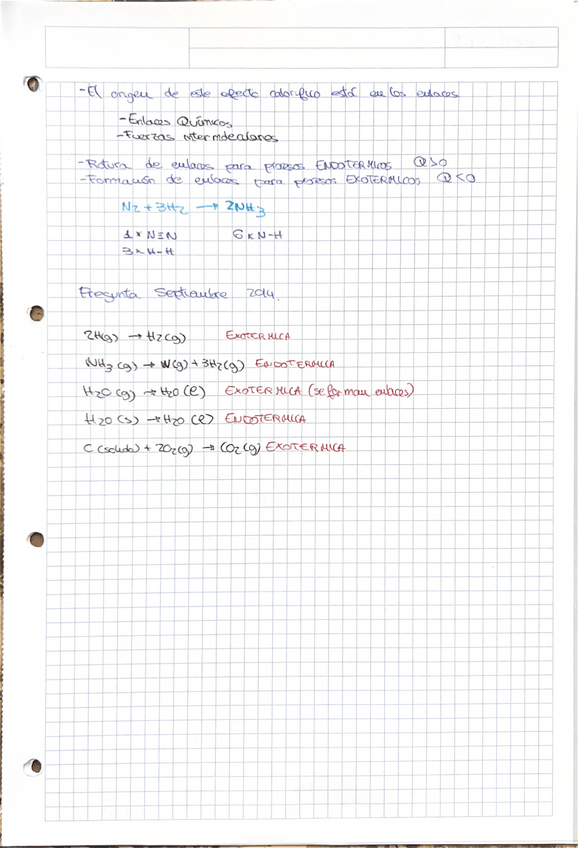 -El origen de este efecto calorífico está en los enlaces
-Enlaces Químicos
-Fuerzas intermoleculares
-Rotura de enlaces para procesos ENDOTERMICOS Q>0
-Formación de enlaces para procesos EXOTERMICOS Q<0
N2 + 3H2 → 2NH3
1 x N≡N 6 x N-H
3 x H-H
Pregunta Septiembre 2014.
2H(g) → H2(g) EXOTERMICA
NH3(g) → N(g) + 3H2(g) ENDOTERMICA
H2O(g) → H2O(l) EXOTERMICA (se forman enlaces)
H2O(s) → H2O(l) ENDOTERMICA
C(solido) + 2O2(g) → CO2(g) EXOTERMICA